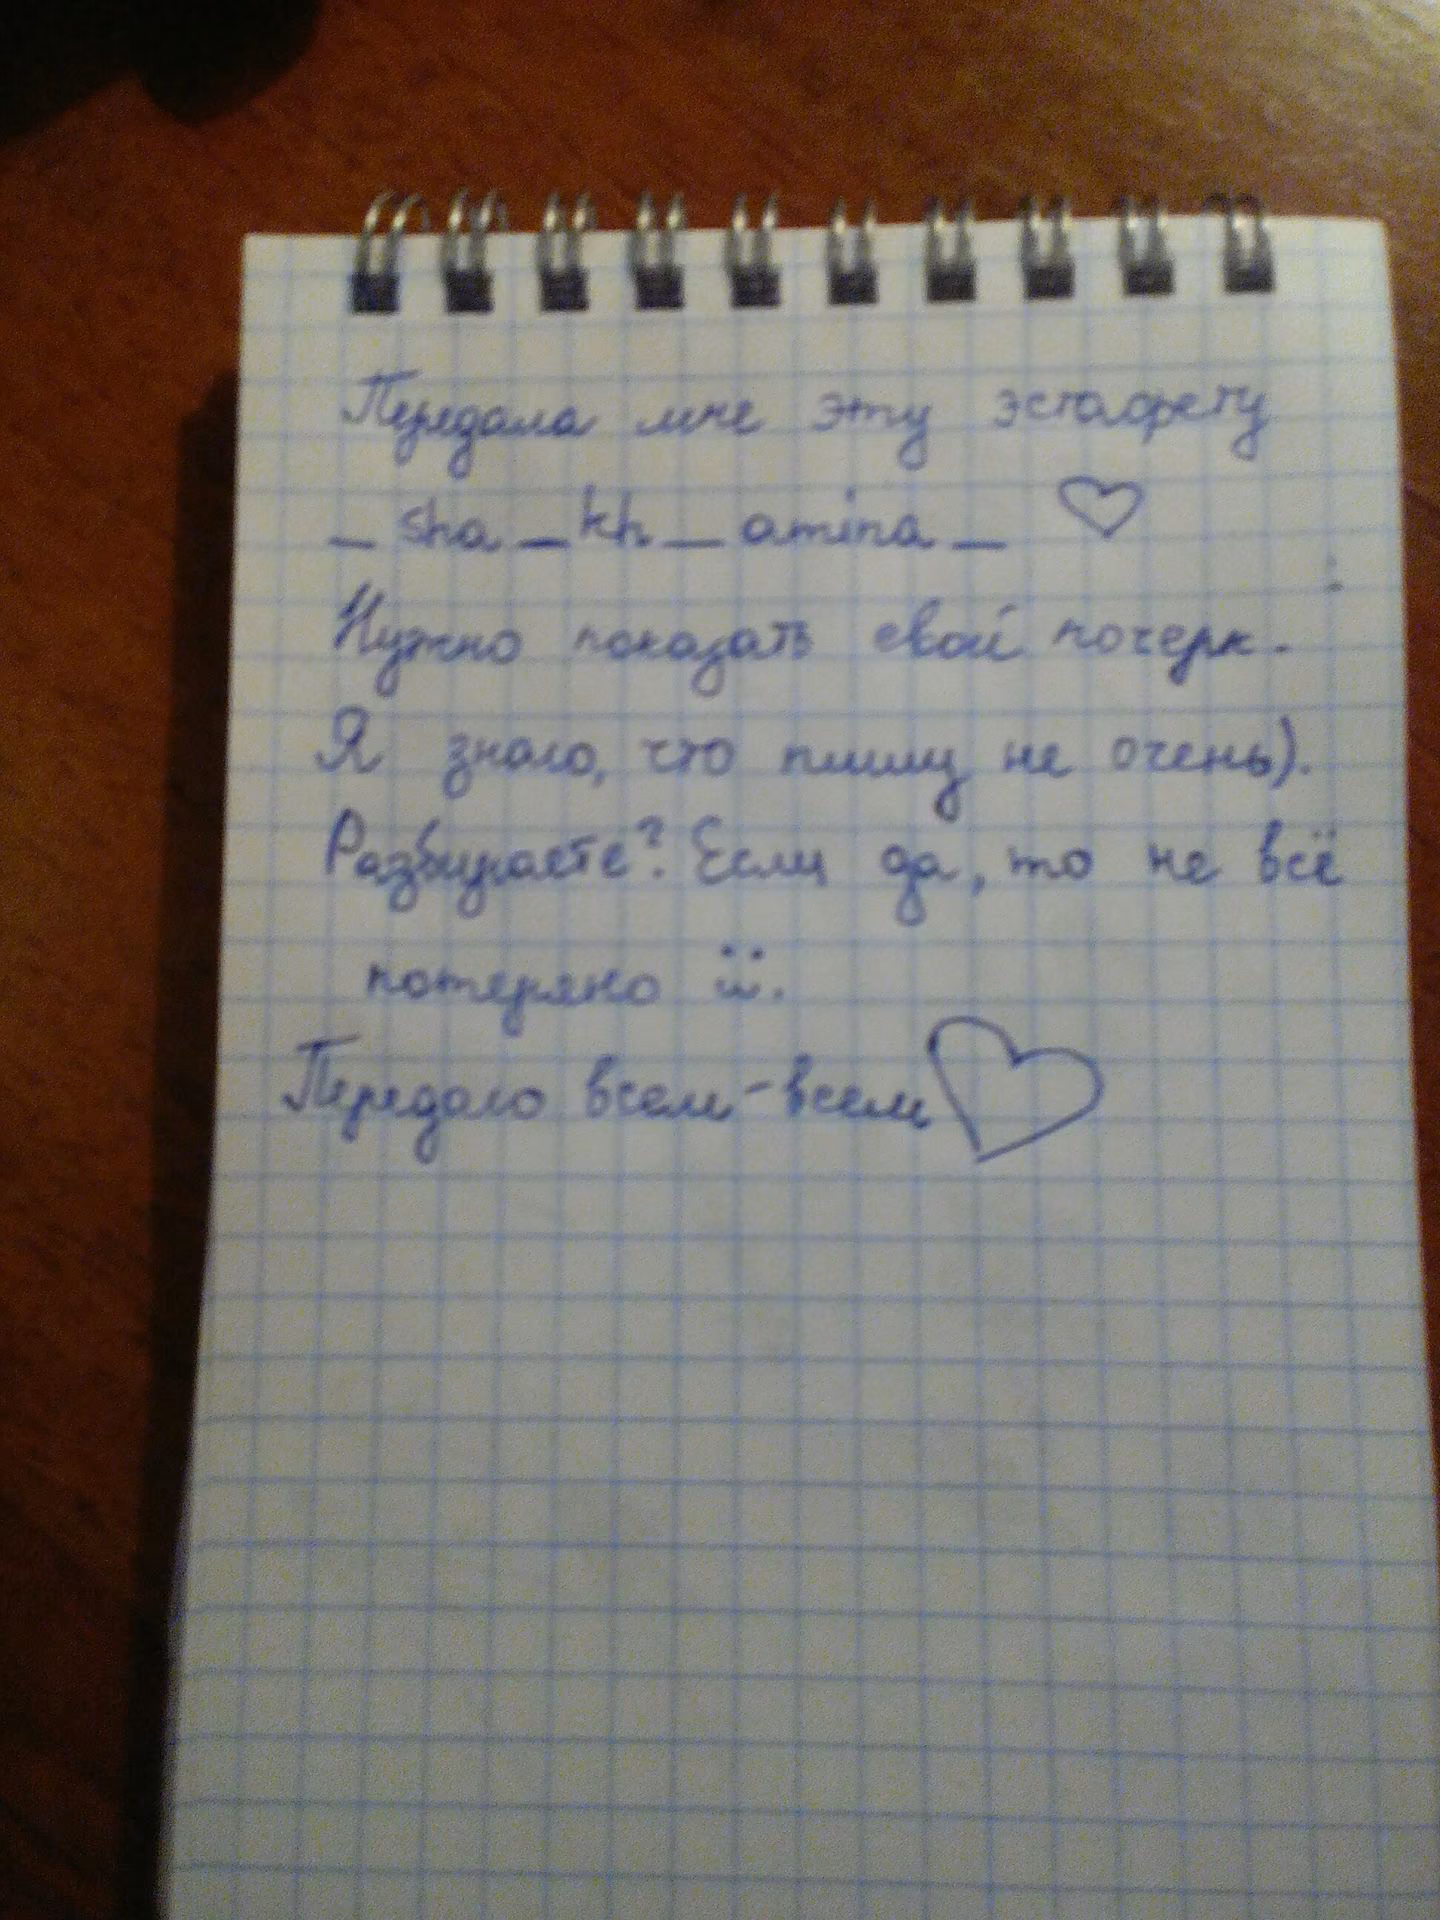 Передала мне эту эстафету
_ sha _ kh _ amina _ ♡
Нужно показать свой почерк.
Я знаю, что пишу не очень).
Разбираете? Если да, то не всё
потеряно ü.
Передаю всем-всем ♡